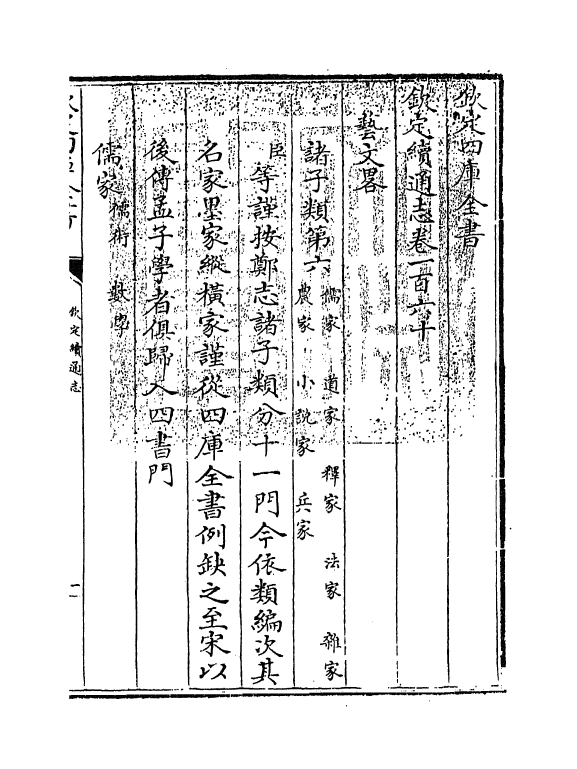 欽定四庫全書
欽定續通志卷一百六十
藝文畧
諸子類第六 儒家 道家 釋家 法家 雜家
農家 小說家 兵家
臣等謹按鄭志諸子類分十一門今依類編次其
名家墨家縱橫家謹從四庫全書例缺之至宋以
後傳孟子學者俱歸入四書門
儒家 儒術 數學
欽定續通志
一